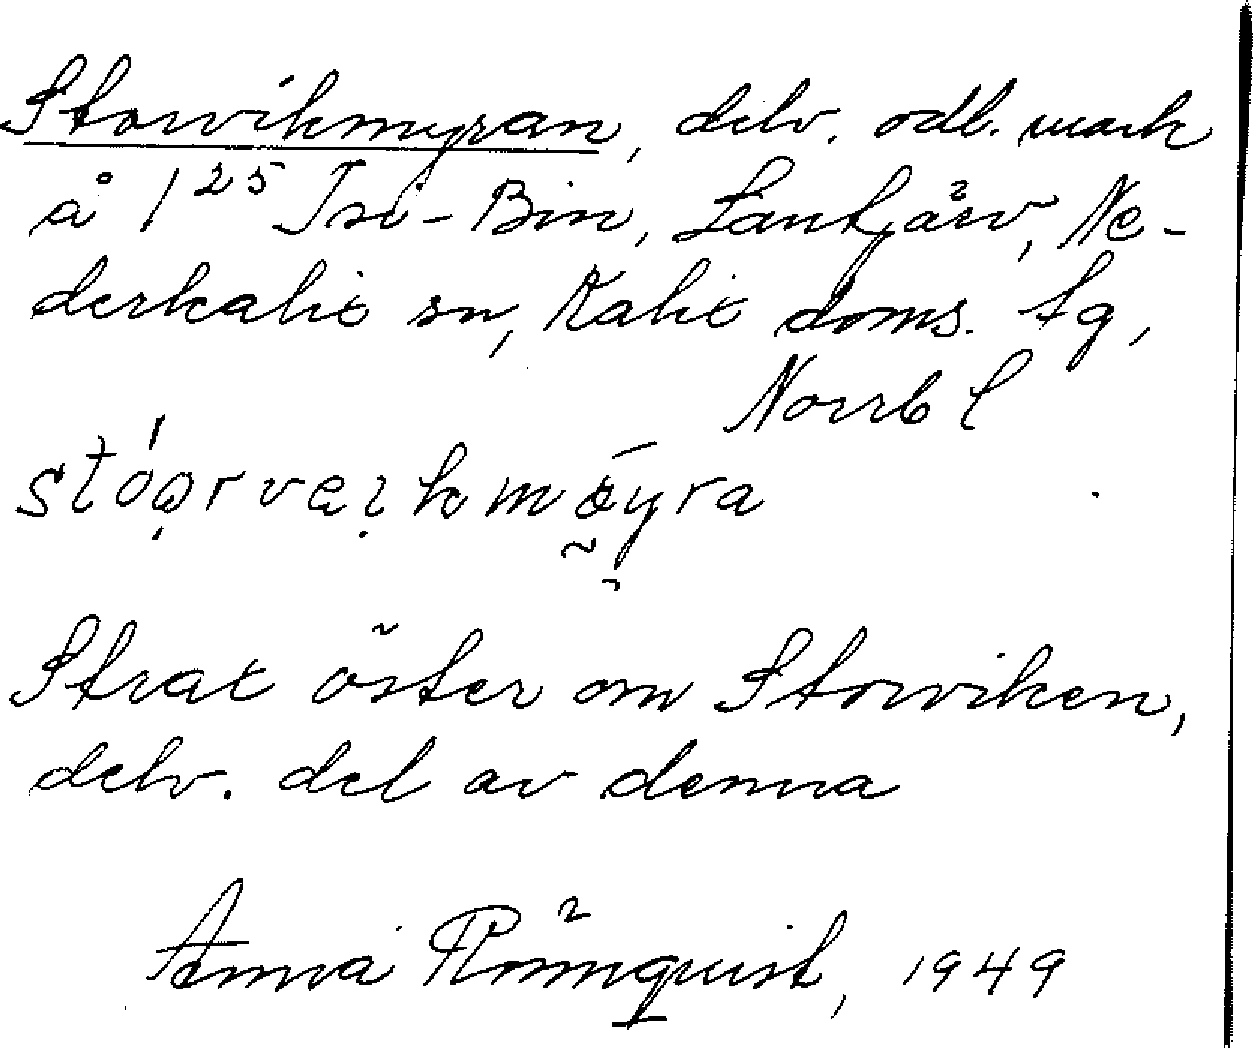 Storvikmyran, delv. odl. mark
å 1²⁵ Isi-Bin, Lantjärv, Ne-
derkalix sn, Kalix doms. tg,
Norrb l
Strax öster om Storviken,
delv. del av denna
Anna Rönnquist, 1949